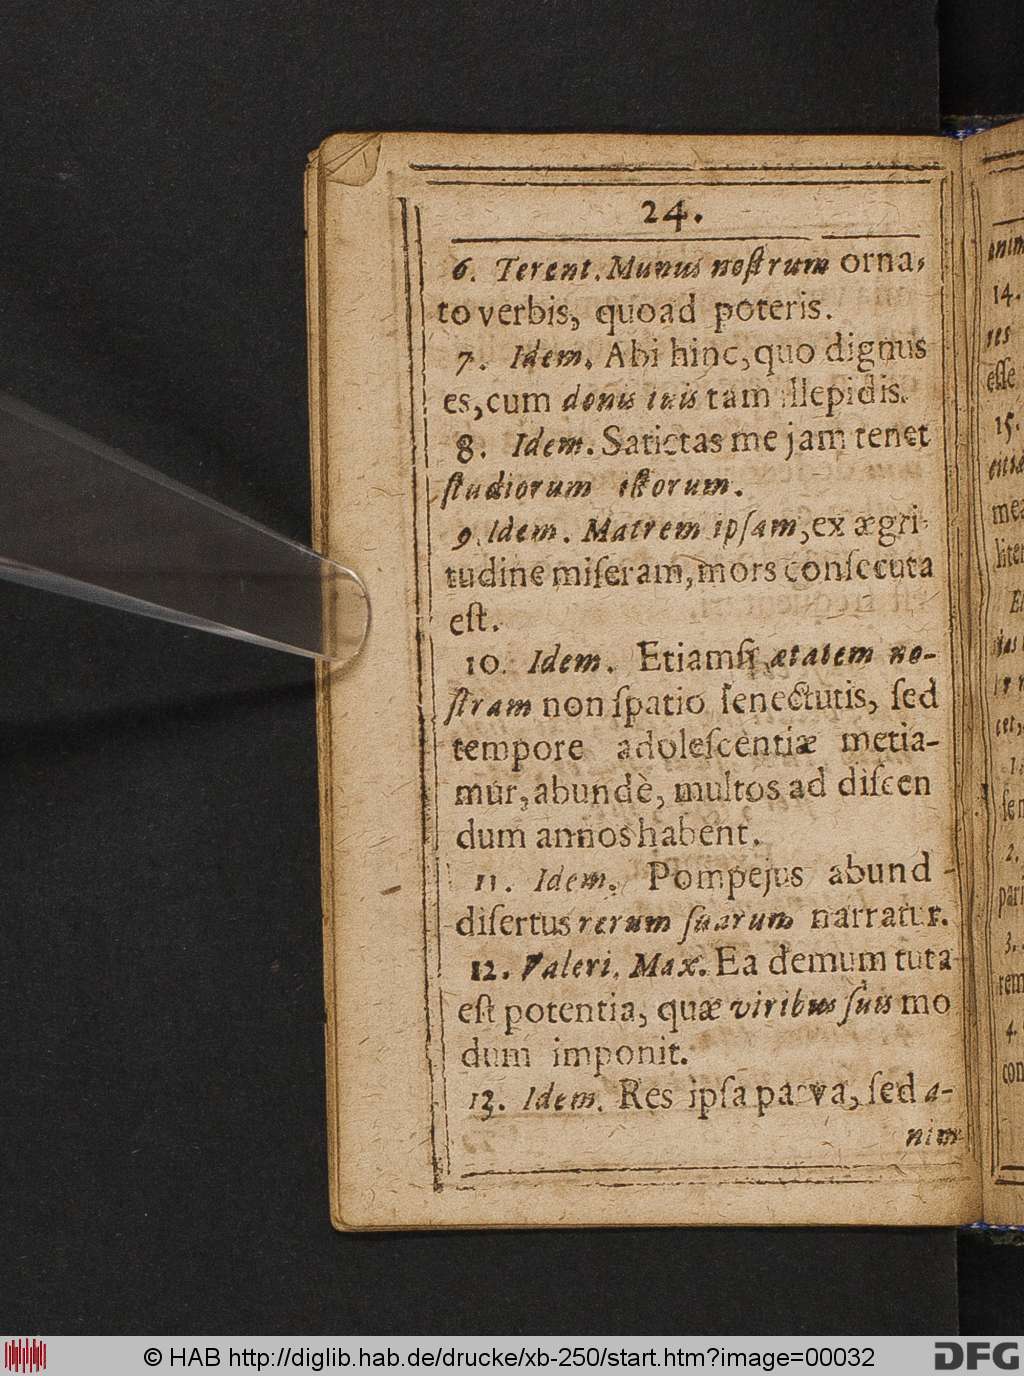 24.
6. Terent. Munus nostrum orna,
to verbis, quoad poteris.
7. Idem. Abi hinc, quo dignus
es, cum donis tuis tam illepidis.
8. Idem. Satietas me jam tenet
ſtudiorum iſtorum.
9. Idem. Matrem ipſam, ex ægri-
tudine miſeram, mors conſecuta
eſt.
10. Idem. Etiamſi ætatem no-
ſtram non ſpatio ſenectutis, ſed
tempore adoleſcentiæ metia-
mur, abundè, multos ad diſcen
dum annos habent.
11. Idem. Pompejus abund-
diſertus rerum ſuarum narratur.
12. Valeri. Max. Ea demum tuta
eſt potentia, quæ viribus ſuis mo
dum imponit.
13. Idem. Res ipſa parva, ſed a-
nim
enim
14.
res
eſſe
15.
mea
liter
2.
3.
rem
4.
con
© HAB http://diglib.hab.de/drucke/xb-250/start.htm?image=00032
DFG